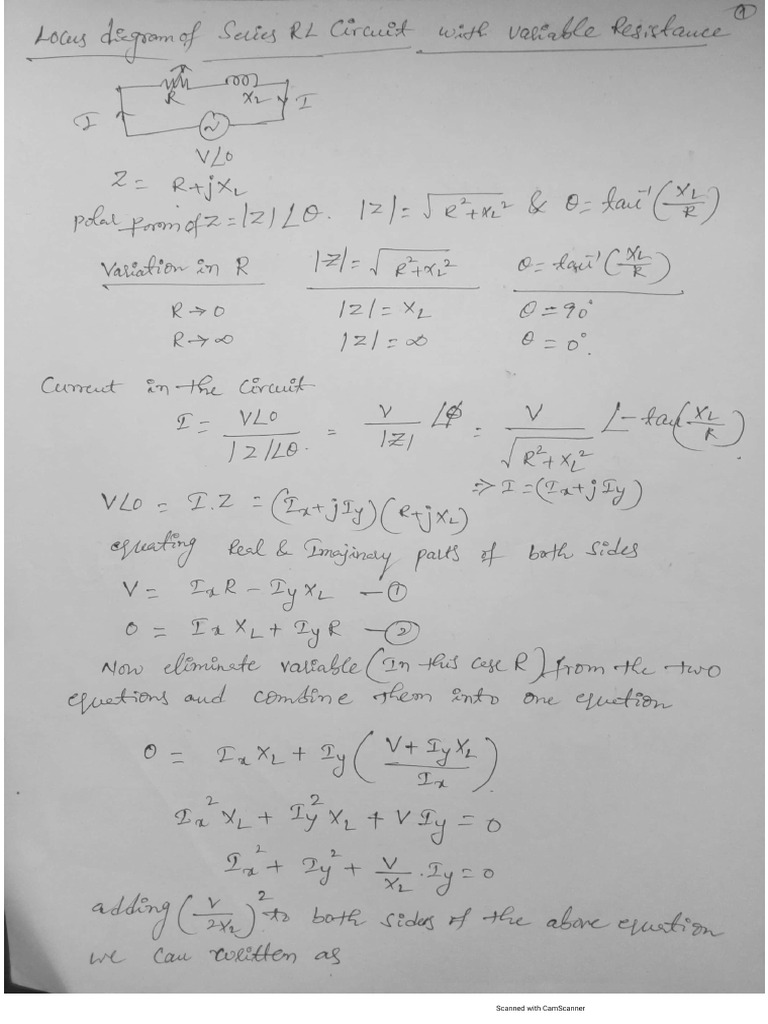 1
Locus diagram of Series RL Circuit with variable Resistance
R XL
I I
V∠0
Z = R+jXL
polar form of Z = |Z|∠θ. |Z| = √(R²+XL²) & θ = tan⁻¹(XL/R)
Variation in R |Z| = √(R²+XL²) θ = tan⁻¹(XL/R)
R→0 |Z| = XL θ = 90°
R→∞ |Z| = ∞ θ = 0°.
Current in the Circuit
I = V∠0 / |Z|∠θ. = V/|Z| ∠Φ = V/√(R²+XL²) ∠-tan(XL/R)
⇒ I = (Ix+jIy)
V∠0 = I.Z = (Ix+jIy)(R+jXL)
equating Real & Imajinary parts of both sides
V = IxR - IyXL — ①
0 = Ix XL + IyR — ②
Now eliminate variable (In this case R) from the two
equations and combine them into one equation
0 = Ix XL + Iy((V+IyXL)/Ix)
Ix² XL + Iy² XL + V Iy = 0
Ix² + Iy² + V/XL . Iy = 0
adding (V/2XL)² to both sides of the above equation
we can written as
Scanned with CamScanner